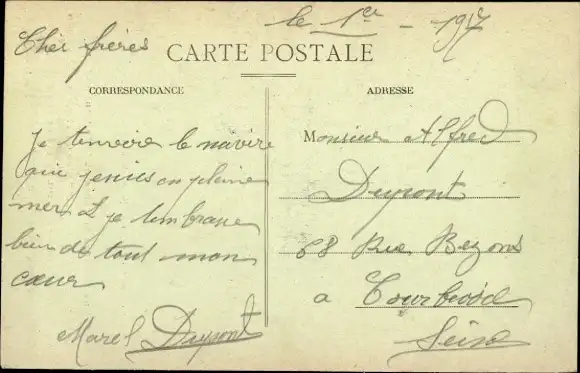 le 1er - 1917
Cher frères
CARTE POSTALE
CORRESPONDANCE
Je tenvoie le navire
que jenies en pleine
mer & je tembrasse
bien de tout mon
cœur
Marcel Dupont
ADRESSE
Monsieur Alfred
Dupont
68 Rue Bezons
a Courbvoid
Seine